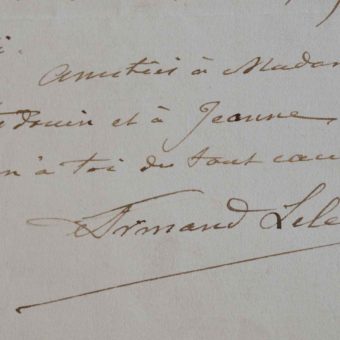 i.
Amitiés à Madam
douin et à Jeanne
n à toi de tout cœu
Armand Sil